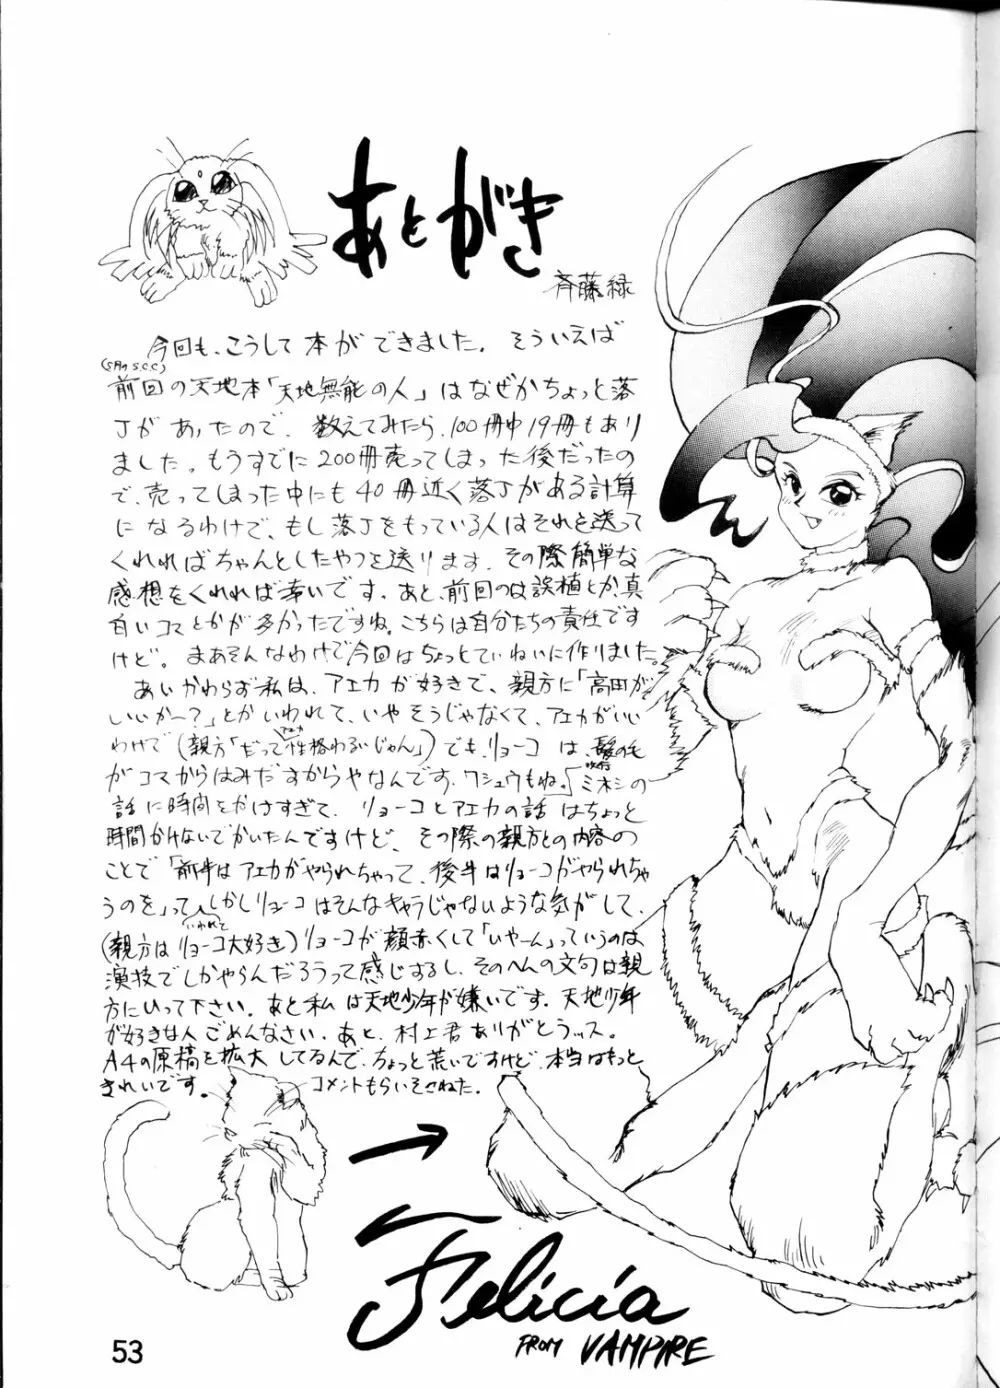 あとがき
斉藤緑
今回も、こうして本ができました。そういえば
(5月の S.C.C)
前回の天地本「天地無能の人」はなぜかちょっと落
丁があったので、数えてみたら、100冊中19冊もあり
ました。もうすでに200冊売ってしまった後だったの
で、売ってしまった中にも40冊近く落丁がある計算
になるわけで、もし落丁をもっている人はそれを送って
くれればちゃんとしたやつを送ります。その際簡単な
感想をくれれば幸いです。あと、前回のは誤植とか、真
白いコマとかが多かったですね。こちらは自分たちの責任です
けど。まあそんなわけで今回はちょっとていねいに作りました。
あいかわらず私は、アエカが好きで、親方に「高田が
いいかー?」とかいわれて、いやそうじゃなくて、アエカがいい
わけで(親方「だって性格わるいじゃん」)でも、リョーコは、髪の毛
アエカ
がコマからはみだすからやなんです。ワシュウもね。「ミネシの
話に時間をかけすぎて、リョーコとアエカの話はちょっと
時間かけないでかいたんですけど、その際の親方との内容の
ことで「前半はアエカがやられちゃって、後半はリョーコがやられちゃ
うのを」っていわれてしかしリョーコはそんなキャラじゃないような気がして、
(親方はリョーコ大好き)リョーコが顔赤くして「いやーん」っていうのは
演技でしかやらんだろうって感じするし、そのへんの文句は親
方にいって下さい。あと私は天地少年が嫌いです。天地少年
が好きな人ごめんなさい。あと、村上君ありがとうッス。
A4の原稿を拡大してるんで、ちょっと荒いですけど、本当はもっと
きれいです。
コメントもらいそこねた。
Felicia
FROM VAMPIRE
53